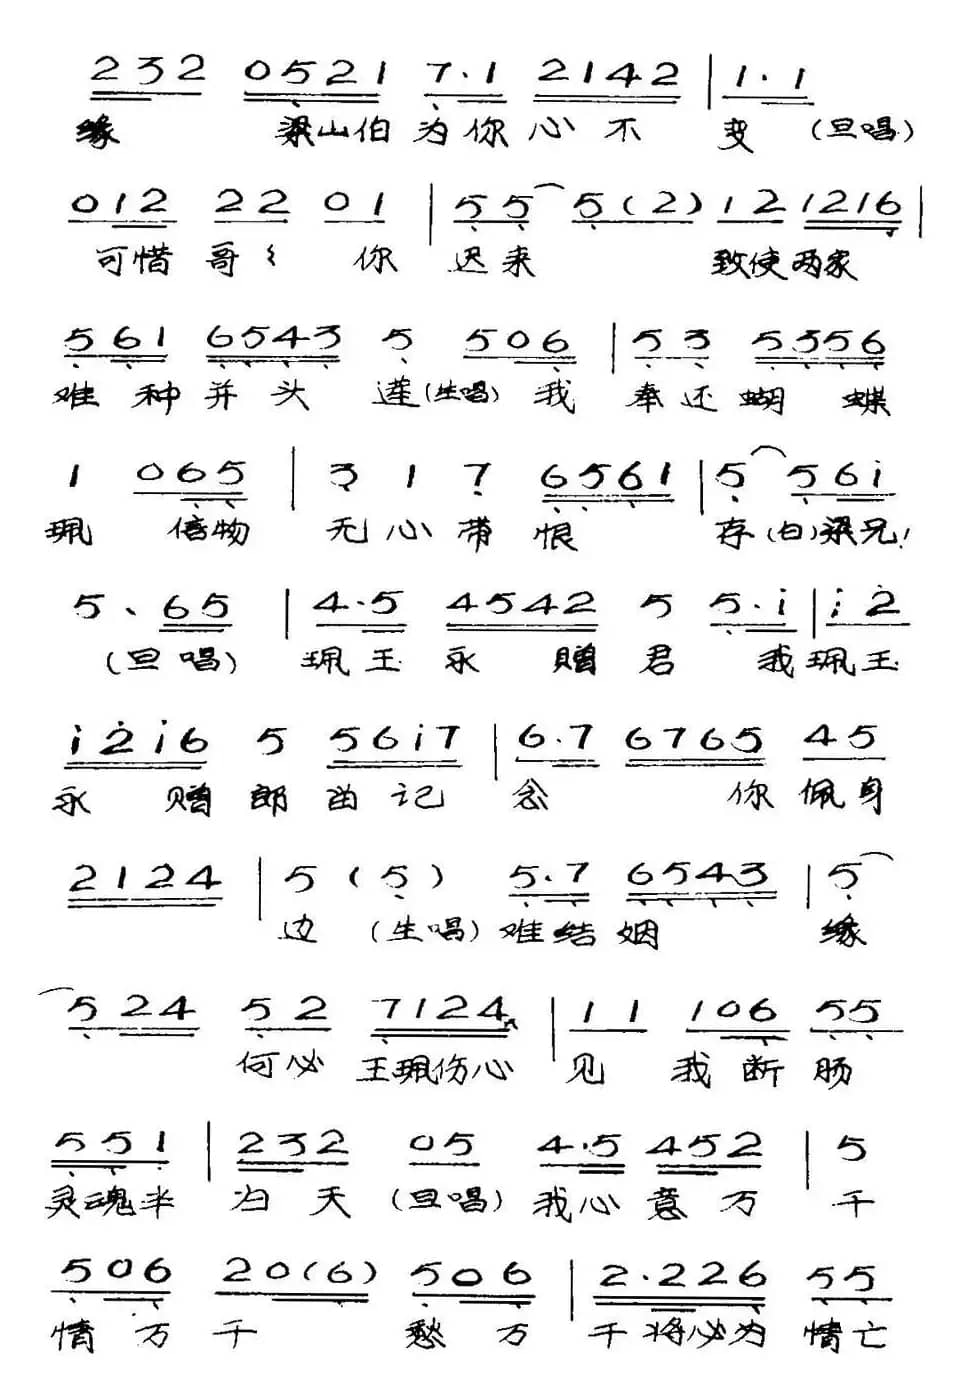 232 0521 7·1 2142 | 1·1
缘 梁山伯为你心不 变 (旦唱)
012 22 01 | 55 5(2) 12 1216 |
可惜哥〻 你 迟来 致使两家
561 6543 5 506 | 53 5356
难种并头 莲(生唱) 我 奉还蝴 蝶
1 065 | 3 1 7 6561 | 5 561
珮 信物 无心带恨 存(白)梁兄!
5、65 | 4·5 4542 5 5·i | i2
(旦唱) 珮玉 永 赠 君 我珮玉
i2i6 5 56i7 | 6·7 6765 45
永 赠 郎 留记 念 你佩身
2124 | 5 (5) 5·7 6543 | 5
边 (生唱) 难结姻 缘
524 52 7124 | 11 106 55
何必 玉珮伤心 见 我断肠
551 | 232 05 4·5 452 | 5
灵魂半 归天 (旦唱) 我心意万 千
506 20(6) 506 | 2·226 55
情万 千 愁万 千将必为 情亡